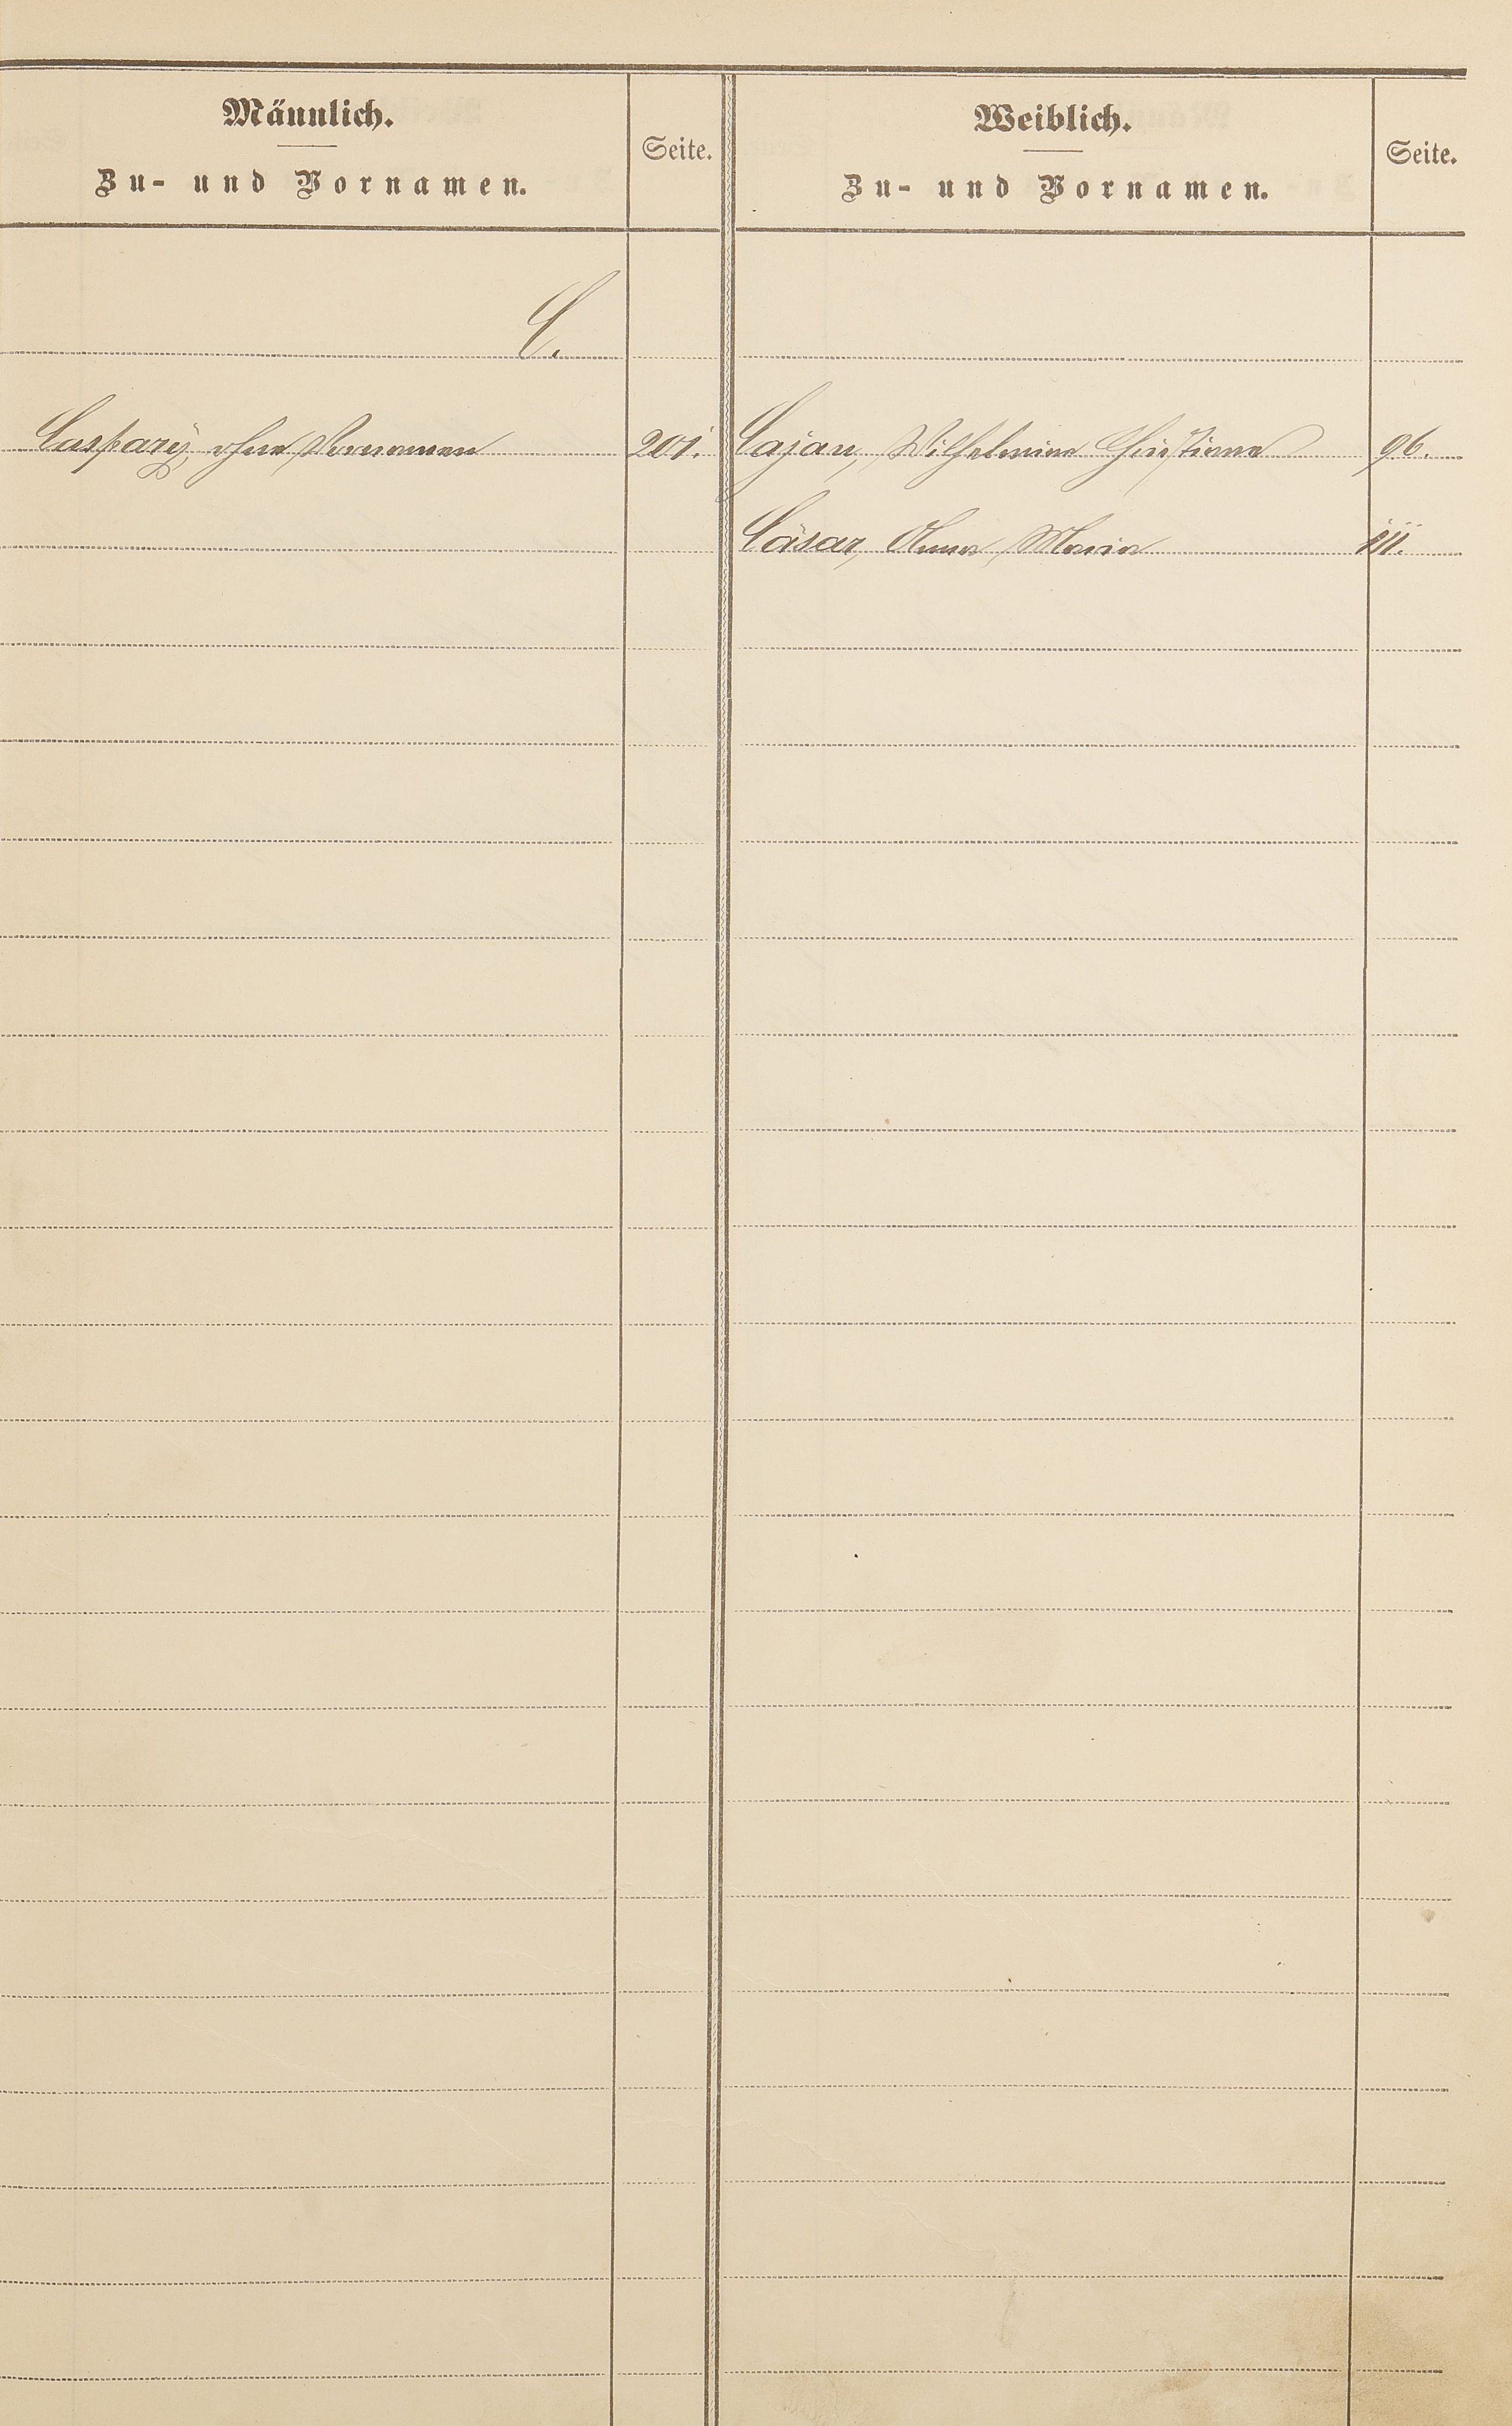 Männlich.
Zu- und Vornamen.
Seite.
Weiblich.
Zu- und Vornamen.
Seite.
C.
Caspary, ohne Vornamen 201.
Cajan, Wilhelmine Christiane 96.
Cäsar, Anna Maria 111.